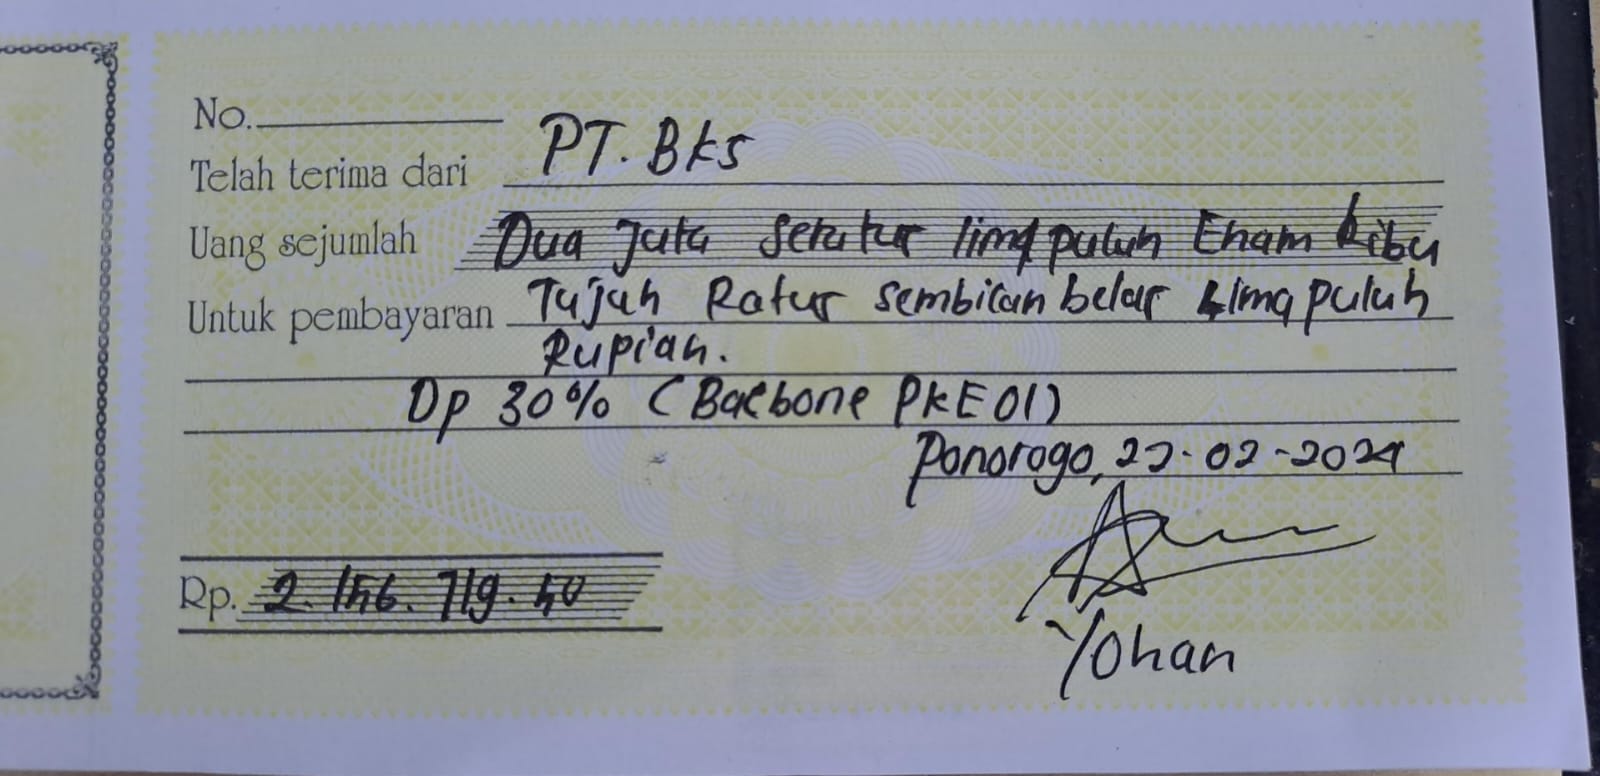 No.
Telah terima dari PT. Bks
Uang sejumlah Dua Juta Seratus lima puluh Enam Ribu
Untuk pembayaran Tujuh Ratus sembilan belas Lima puluh
Rupiah.
Dp 30% (Bacbone PKE01)
Ponorogo, 22-02-2024
Rp. 2.156.719.50
Yohan